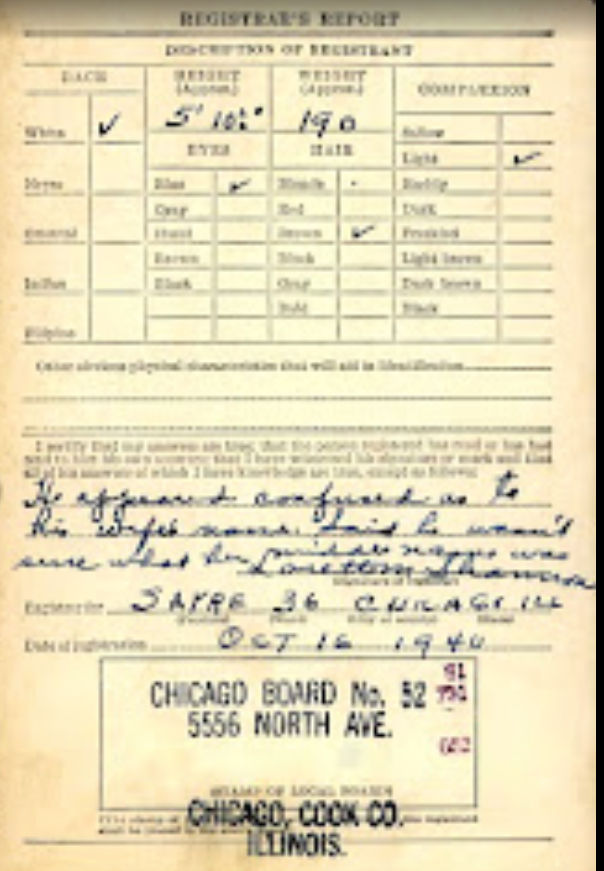 REGISTRAR'S REPORT
DESCRIPTION OF REGISTRANT
RACE
HEIGHT (Approx.)
WEIGHT (Approx.)
COMPLEXION
White ✓
5' 10½"
190
Sallow
EYES
HAIR
Light ✓
Negro
Blue ✓
Blonde
Ruddy
Gray
Red
Dark
Oriental
Hazel
Brown ✓
Freckled
Brown
Black
Light brown
Indian
Black
Gray
Dark brown
Bald
Black
Filipino
Other obvious physical characteristics that will aid in identification
I certify that my answers are true; that the person registered has read or has had
read to him his own answers; that I have witnessed his signature or mark and that
all of his answers of which I have knowledge are true, except as follows:
He appeared confused as to
his wife's name. Said he wasn't
sure what her middle name was
Shannon
Registrar for SAYRE 36 CHICAGO ILL
Date of registration OCT 16 1940
CHICAGO BOARD No. 52
5556 NORTH AVE.
STAMP OF LOCAL BOARD
CHICAGO, COOK CO.
ILLINOIS.